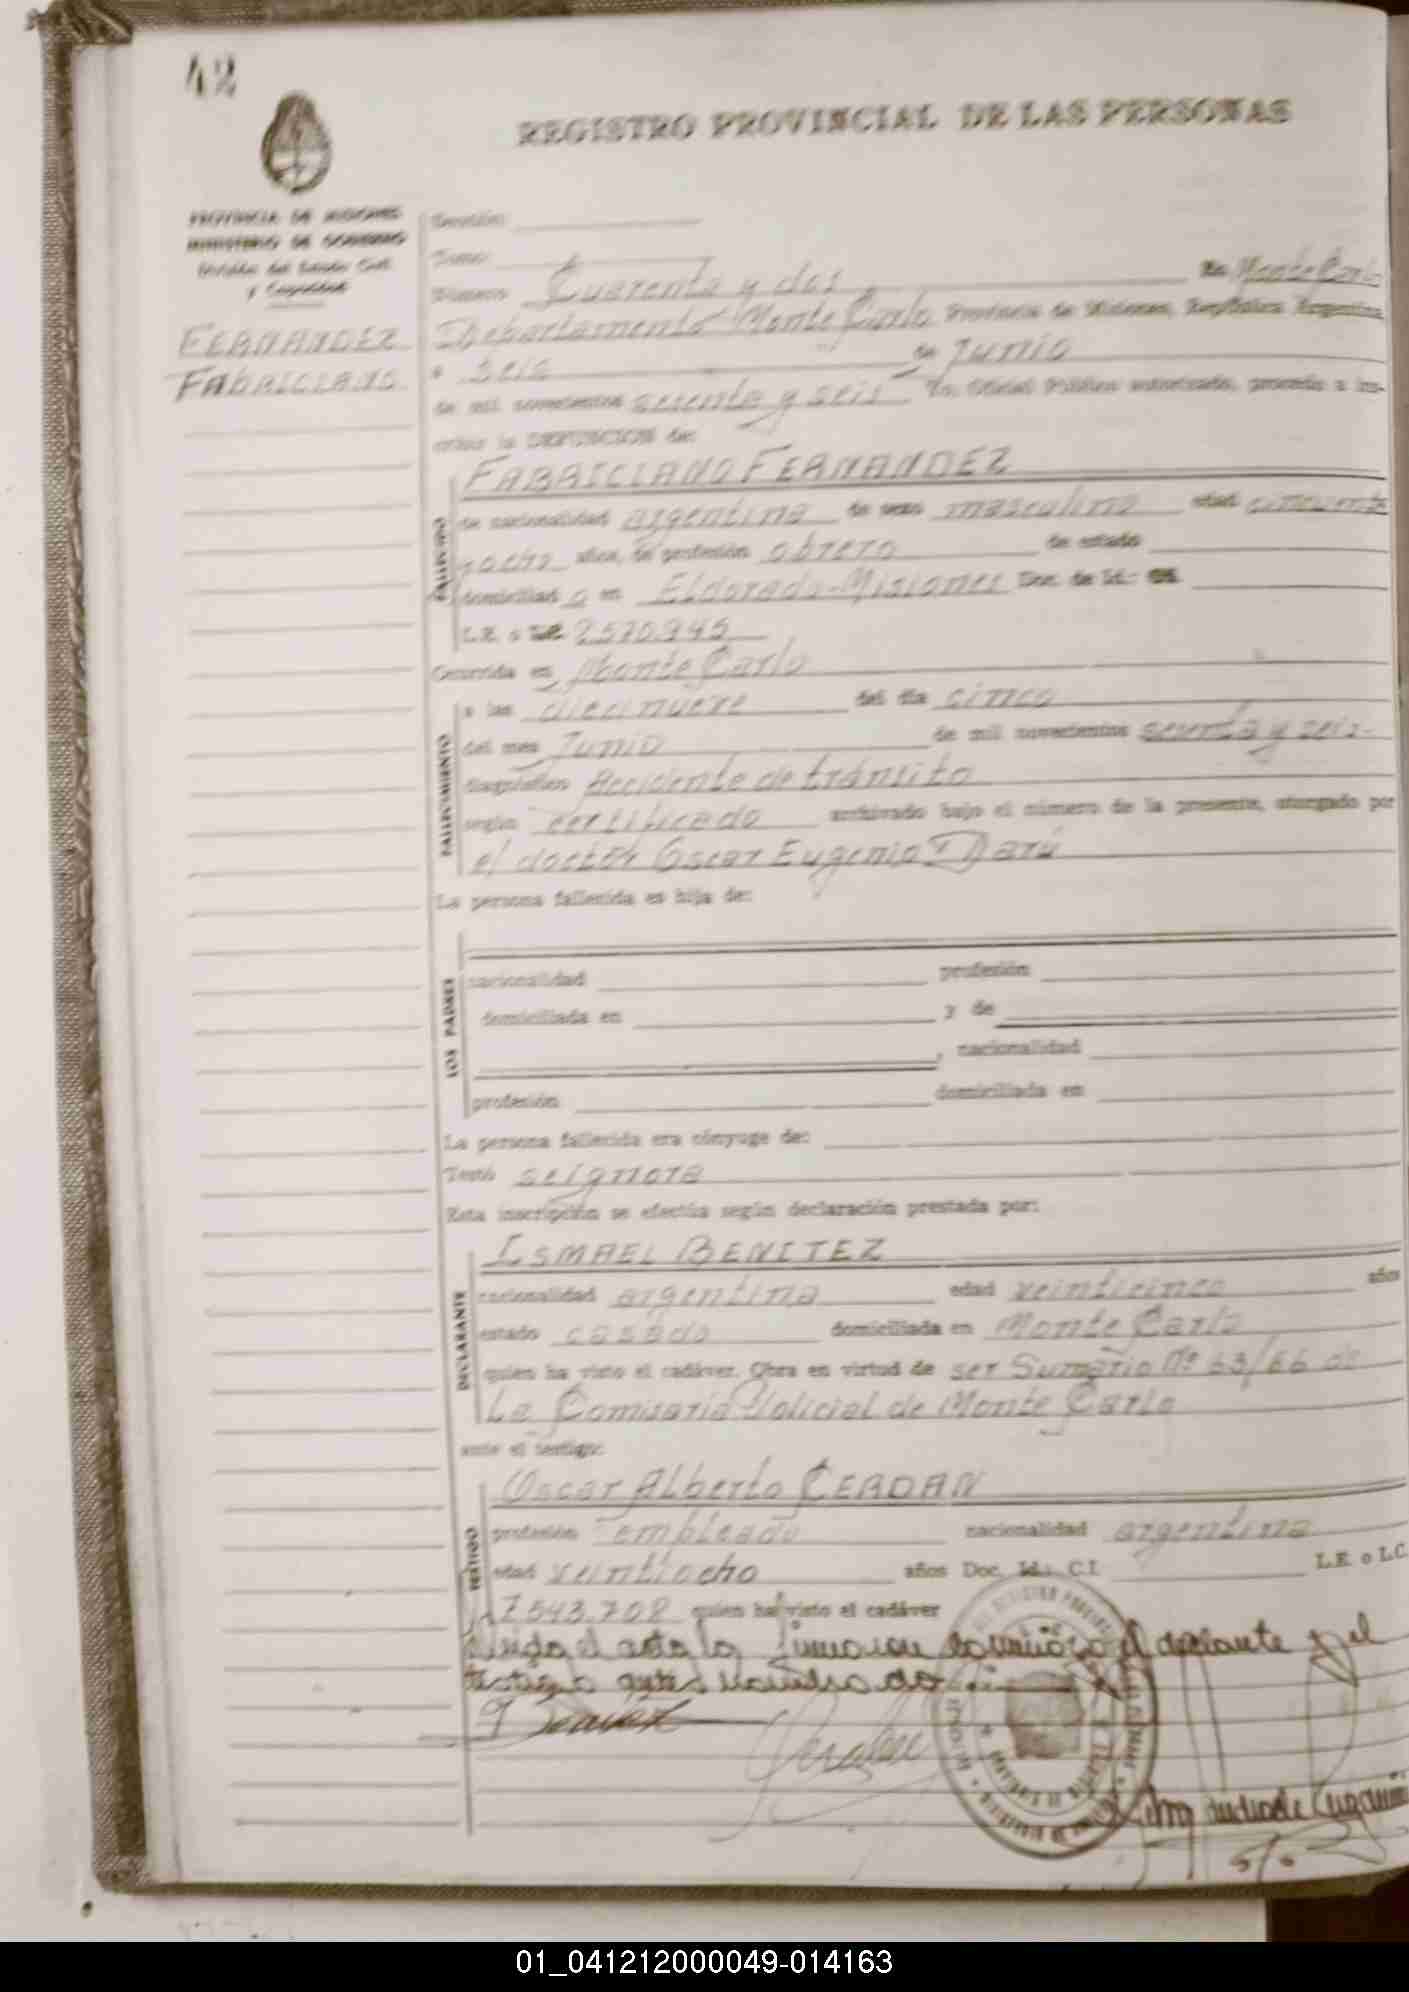 42
REGISTRO PROVINCIAL DE LAS PERSONAS
PROVINCIA DE MISIONES
MINISTERIO DE GOBIERNO
División del Estado Civil
y Capacidad
FERNANDEZ
FABRICIANO
Sección:
Tomo:
Número Cuarenta y dos En Monte Carlo
Departamento Monte Carlo Provincia de Misiones, República Argentina
a seis de Junio
de mil novecientos sesenta y seis Yo, Oficial Público autorizado, procedo a ins-
cribir la DEFUNCION de:
FABRICIANO FERNANDEZ
FALLECIDO
de nacionalidad argentina de sexo masculino edad cincuenta
y ocho años, de profesión obrero de estado
domiciliad o en Eldorado-Misiones Doc. de Id.:
L.E. o 2570.945
Ocurrida en Monte Carlo
FALLECIMIENTO
a las diecinueve del día cinco
del mes Junio de mil novecientos sesenta y seis-
diagnóstico Accidente de tránsito
según certificado archivado bajo el número de la presente, otorgado por
el doctor Oscar Eugenio Darú
La persona fallecida es hija de:
LOS PADRES
nacionalidad profesión
domiciliada en y de
, nacionalidad
profesión domiciliada en
La persona fallecida era cónyuge de:
Testó se ignora
Esta inscripción se efectúa según declaración prestada por:
DECLARANTE
ISMAEL BENITEZ
nacionalidad argentina edad veinticinco años
estado casado domiciliada en Monte Carlo
quien ha visto el cadáver. Obra en virtud de ser Sumario Nº 63/66 de
La Comisaría Policial de Monte Carlo
ante el testigo:
TESTIGO
Oscar Alberto CERDAN
profesión empleado nacionalidad argentina
edad veintiocho años Doc. Id.: C.I. L.E. o L.C.
7543.708 quien ha visto el cadáver
Leída el acta la firmaron conmigo el declarante y el
testigo antes nombrado
01_041212000049-014163